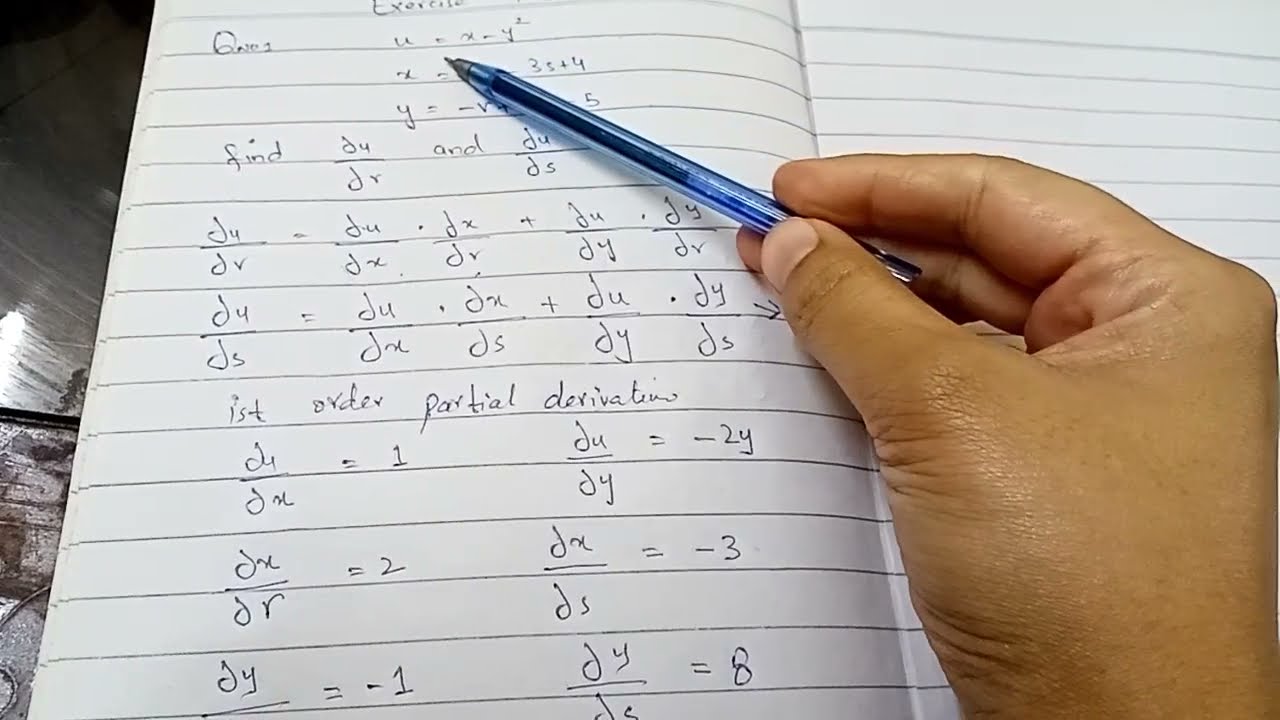 Exercise
Ques u = x - y²
x = 3s+4
y = -r+ 5
find ∂u/∂r and ∂u/∂s
∂u/∂r = ∂u/∂x · ∂x/∂r + ∂u/∂y · ∂y/∂r
∂u/∂s = ∂u/∂x · ∂x/∂s + ∂u/∂y · ∂y/∂s →
ist order partial derivative
∂u/∂x = 1 ∂u/∂y = -2y
∂x/∂r = 2 ∂x/∂s = -3
∂y = -1 ∂y/∂s = 8